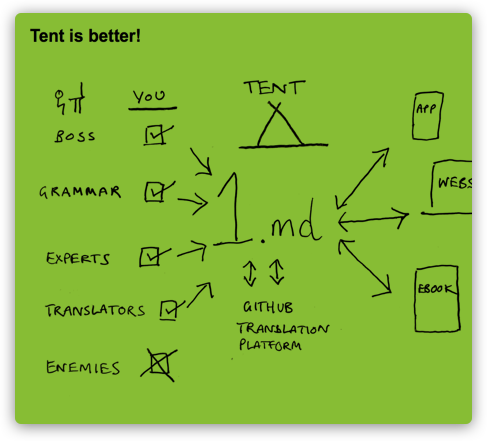 Tent is better!
YOU
BOSS
GRAMMAR
EXPERTS
TRANSLATORS
ENEMIES
TENT
1.md
GITHUB
TRANSLATION
PLATFORM
APP
WEBS
EBOOK